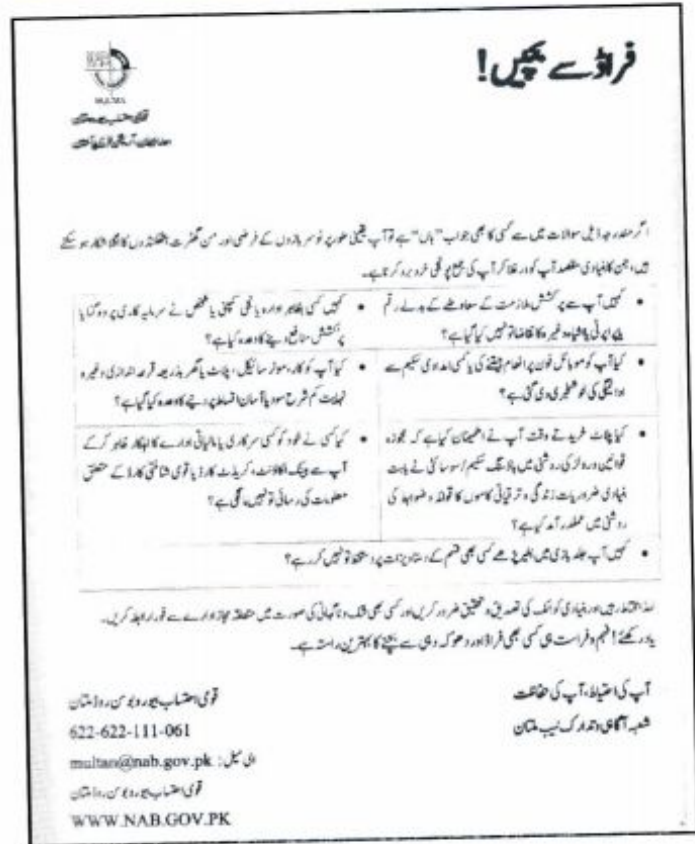 فراڈ سے بچیں!
MULTAN
قومی احتساب بیورو ملتان
اگر مندرجہ ذیل سوالات میں سے کسی کا بھی جواب "ہاں" ہے تو آپ یقینی طور پر نوسربازوں کے فرضی اور من گھڑت ہتھکنڈوں کا نشانہ ہو سکتے
ہیں، جن کا بنیادی مقصد آپ کو ورغلا کر آپ کی جمع پونجی خرد برد کرنا ہے۔
• کہیں آپ سے پرکشش ملازمت کے معاوضے کے بدلے رقم
پراپرٹی یا اشیاء وغیرہ کا تقاضا تو نہیں کیا گیا ہے؟
• کہیں کسی بظاہر ادارہ یا نجی کمپنی یا شخص نے سرمایہ کاری پر دوگنا یا
پرکشش منافع دینے کا وعدہ کیا ہے؟
• کیا آپ کو موبائل فون پر انعام جیتنے کی یا کسی امدادی سکیم سے
ادائیگی کی خوشخبری دی گئی ہے؟
• کیا آپ کو کار، موٹر سائیکل، پلاٹ یا گھر بذریعہ قرعہ اندازی وغیرہ
نہایت کم شرح سود یا آسان اقساط پر دینے کا وعدہ کیا گیا ہے؟
• کیا پلاٹ خریدتے وقت آپ نے اطمینان کیا ہے کہ مجوزہ
قوانین و رولز کی روشنی میں ہاؤسنگ سکیم / سوسائٹی نے بابت
بنیادی ضروریات زندگی و ترقیاتی کاموں کا قواعد و ضوابط کی
روشنی میں عملدرآمد کیا ہے؟
• کیا کسی نے خود کو کسی سرکاری یا مالیاتی ادارے کا اہلکار ظاہر کر کے
آپ سے بینک اکاؤنٹ، کریڈٹ کارڈ یا قومی شناختی کارڈ کے متعلق
معلومات کی رسائی تو نہیں لی ہے؟
• کہیں آپ جلد بازی میں بغیر پڑھے کسی بھی قسم کے دستاویزات پر دستخط تو نہیں کر رہے؟
لہٰذا محتاط رہیں اور بنیادی کوائف کی تصدیق و تحقیق ضرور کریں اور کسی بھی شک و ناگہانی کی صورت میں متعلقہ مجاز ادارے سے فوراً رابطہ کریں۔
یاد رکھئے! فہم و فراست ہی کسی بھی فراڈ اور دھوکہ دہی سے بچنے کا بہترین راستہ ہے۔
آپ کی احتیاط، آپ کی حفاظت
شعبہ آگاہی و تدارک نیب ملتان
قومی احتساب بیورو بوسن روڈ ملتان
622-622-111-061
ای میل: multan@nab.gov.pk
قومی احتساب بیورو بوسن روڈ ملتان
WWW.NAB.GOV.PK